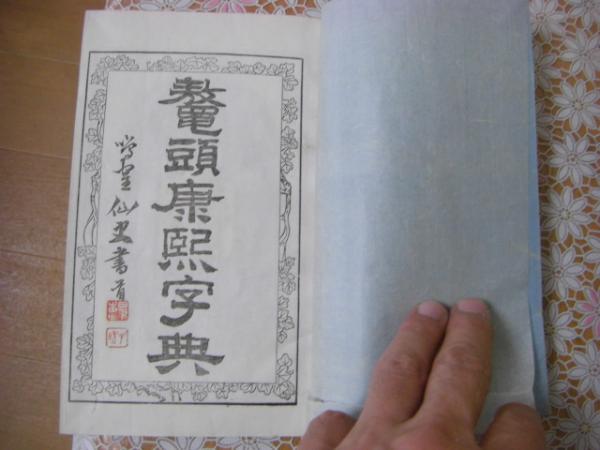 鼇頭康熙字典
仙史書首